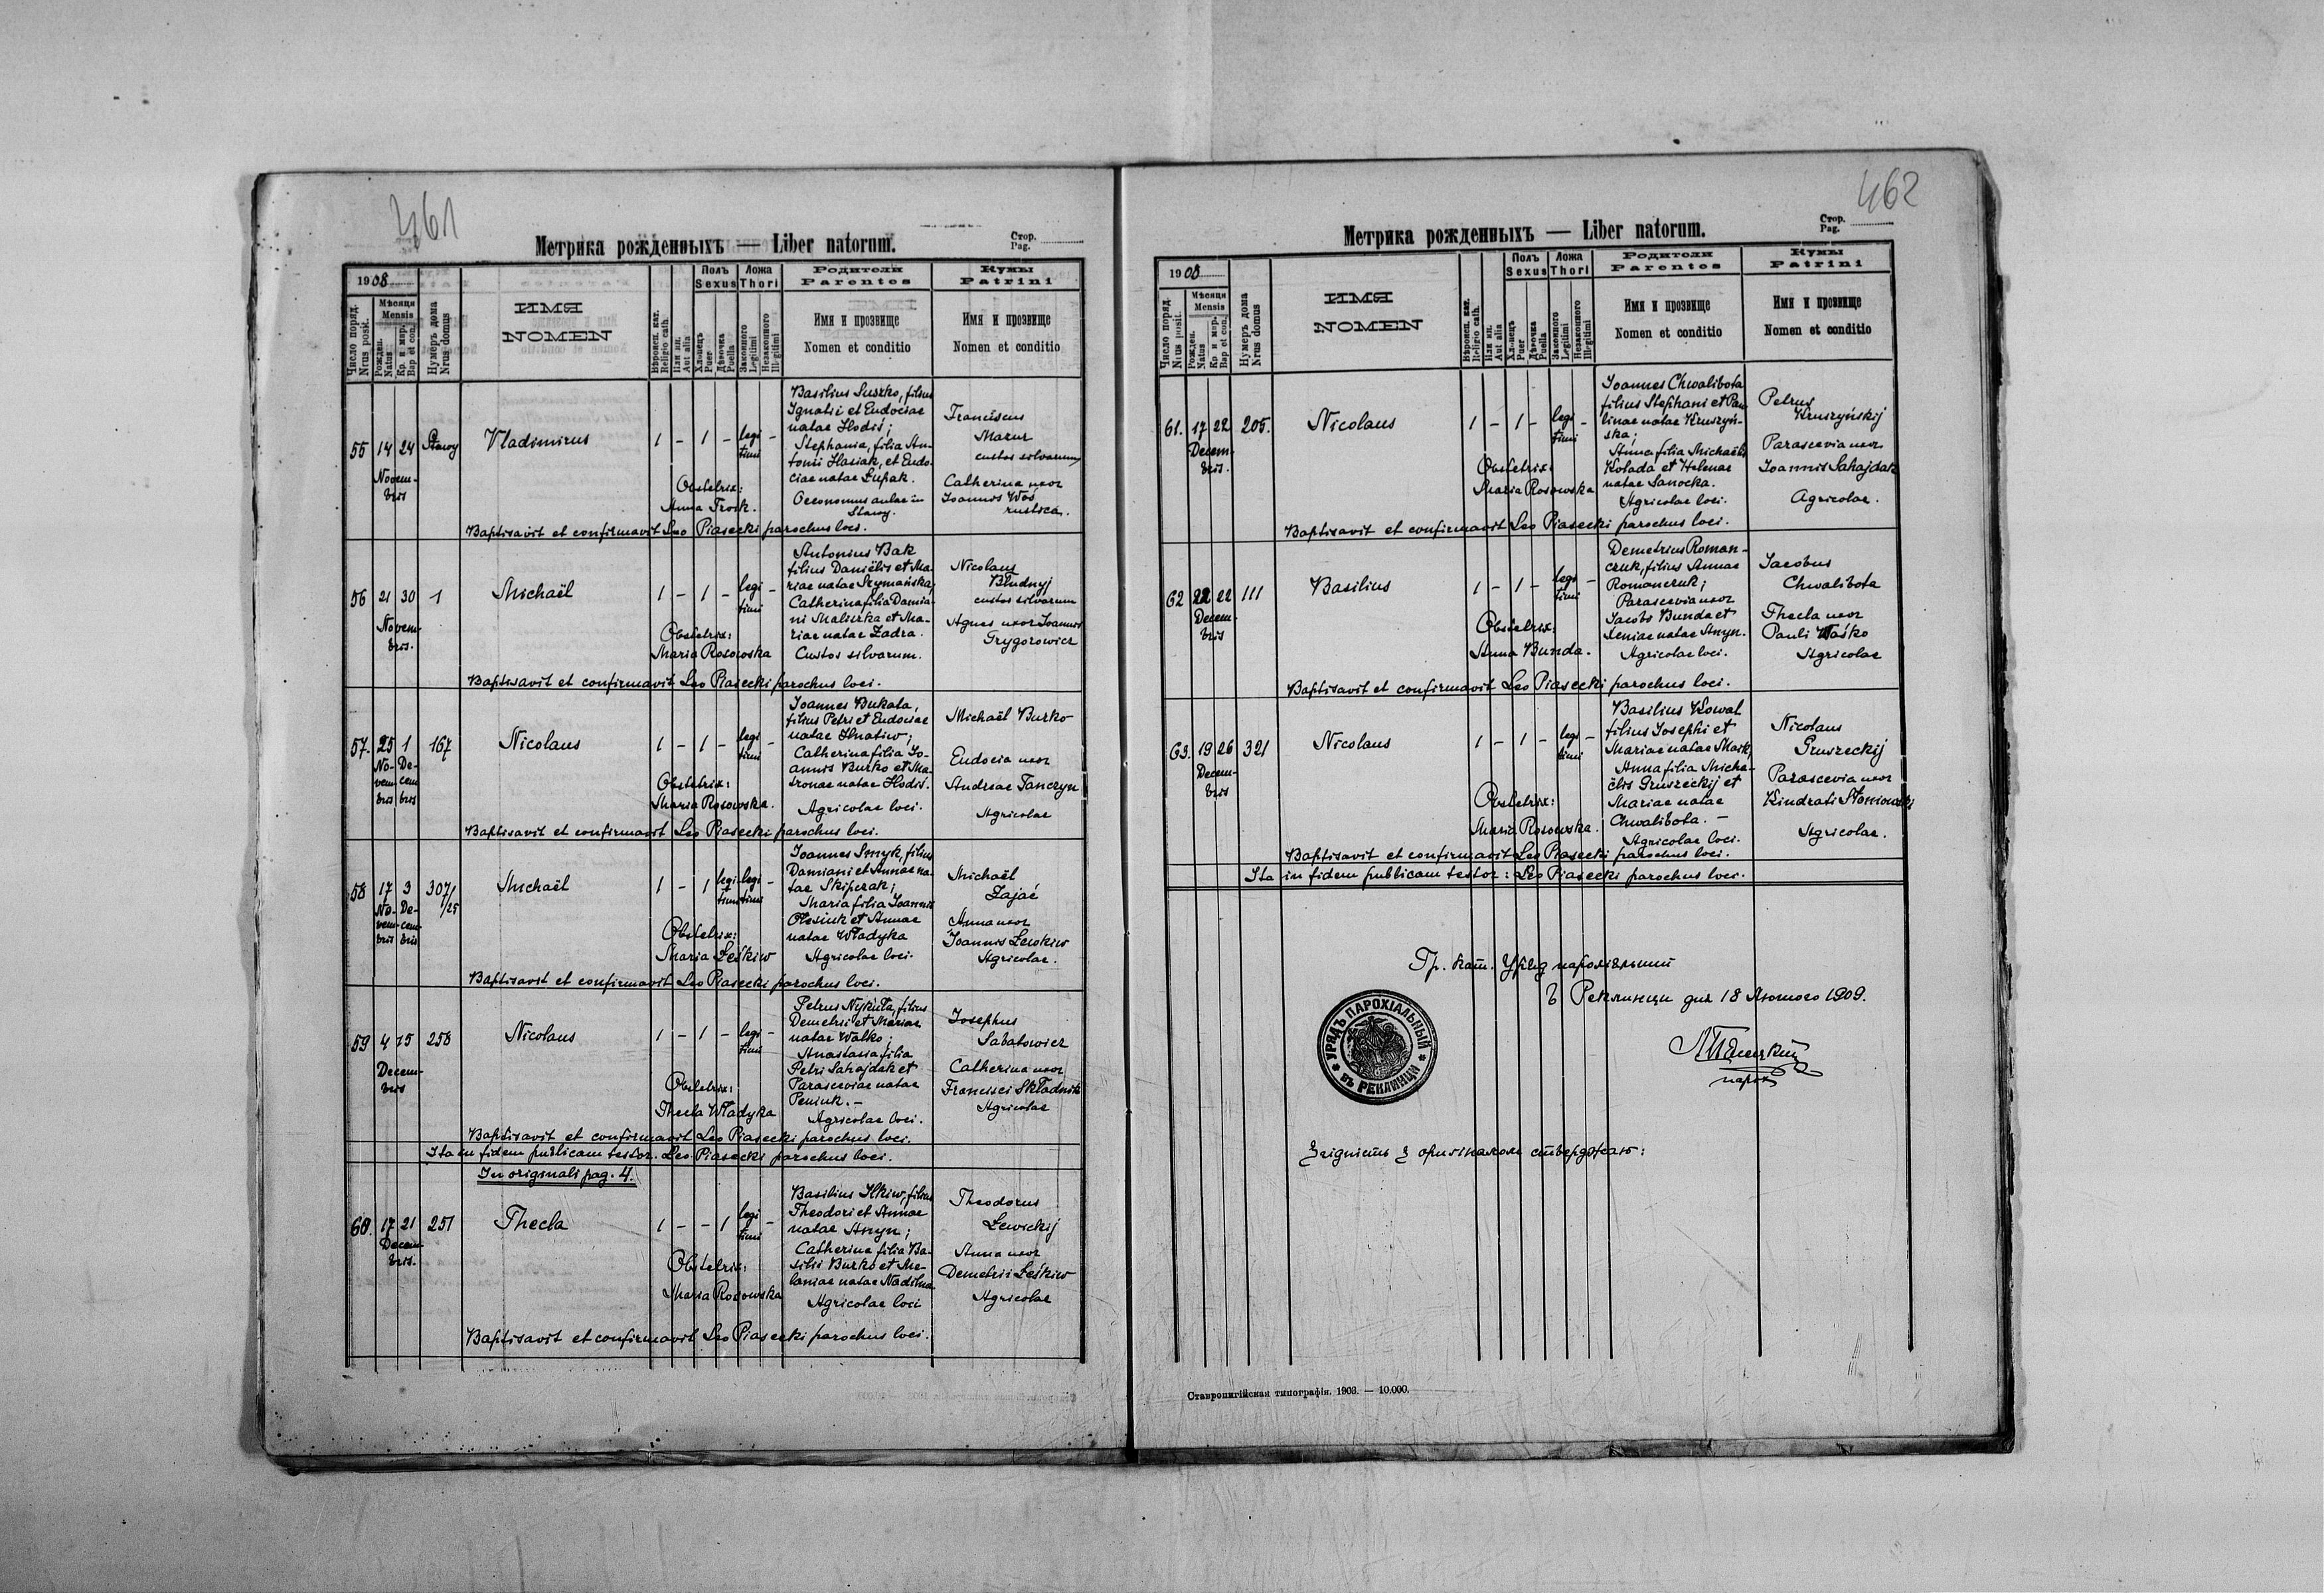 461
Метрика рожденныхъ — Liber natorum.
Стор.
Pag.
1908
Число поряд.
Nrus posit.
Мѣсяця
Mensis
Рожден.
Natus
Кр. и мир.
Bap et con.
Нумеръ дома
Nrus domus
ИМЯ
NOMEN
Вѣроисп. кат.
Religio cath.
Или ин.
Aut alia
Полъ
Sexus
Хл-пецъ
Puer
Дѣвочка
Puella
Ложа
Thori
Законного
Legitimi
Незаконного
Illegitimi
Родители
Parentes
Имя и прозвище
Nomen et conditio
Кумы
Patrini
Имя и прозвище
Nomen et conditio
55 14 24 Stawy Vladimirus 1 – 1 – legi- –
timi
Novem-
bris
Obstetrix:
Anna Frosk.
Basilius Suszko, filius
Ignatii et Eudociae
natae Hodis;
Stephania, filia An-
tonii Hasiak, et Eudo-
ciae natae Łupak.
Oeconomus aulae in
Stawy.
Franciscus
Mazur
custos silvarum
Catherina uxor
Joannis Woś
rustica.
Baptisavit et confirmavit Leo Piasecki parochus loci.
56 21 30 1 Michaël 1 – 1 – legi- –
timi
Novem-
bris.
Obstetrix:
Maria Rosowska
Antonius Bak
filius Daniëlis et Ma-
riae natae Szymańska;
Catherina filia Damia-
ni Maliszka et Ma-
riae natae Zadra.
Custos silvarum.
Nicolaus
Błudnyj
custos silvarum
Agnes uxor Joannis
Grygorowicz
Baptisavit et confirmavit Leo Piasecki parochus loci.
57. 25 1 167 Nicolaus 1 – 1 – legi- –
timi
No- De-
vem- cem
bris bris
Obstetrix:
Maria Rosowska.
Joannes Bukata,
filius Petri et Eudociae
natae Ihnatiw;
Catherina filia Jo-
annis Burko et Ma-
tronae natae Hodis.
Agricolae loci.
Michaël Burko
Eudocia uxor
Andreae Tanczyn
Agricolae
Baptisavit et confirmavit Leo Piasecki parochus loci.
58 17 3 307/25 Michaël 1 – 1 legi- legi- –
timi timi
No- De-
vem- cem-
bris bris
Obstetrix:
Maria Łeśkiw
Joannes Smyk, filius
Damiani et Annae na-
tae Skiperak;
Maria filia Joannis
Olesiuk et Annae
natae Władyka
Agricolae loci.
Michaël
Zajać
Anna uxor
Joannis Lewkiw
Agricolae.
Baptisavit et confirmavit Leo Piasecki parochus loci.
59 4 15 258 Nicolaus 1 – 1 – legi- –
timi
Decem-
bris
Obstetrix:
Thecla Władyka
Petrus Nykuła, filius
Demetrii et Mariae
natae Walko;
Anastasia filia
Petri Sahajdak et
Parasceviae natae
Peniuk. –
Agricolae loci.
Josephus
Sabatowicz
Catherina uxor
Francisci Składnik
Agricolae
Baptisavit et confirmavit Leo Piasecki parochus loci.
Ita in fidem publicam testor. Leo Piasecki parochus loci.
In originali pag. 4.
60. 17 21 251 Thecla 1 – – 1 legi- –
timi
Decem-
bris.
Obstetrix:
Maria Rosowska
Basilius Ilkiw, filius
Theodori et Annae
natae Anyn;
Catherina filia Ba-
silii Burko et Me-
laniae natae Nadilna
Agricolae loci
Theodorus
Lewickij
Anna uxor
Demetrii Łeśkiw
Agricolae
Baptisavit et confirmavit Leo Piasecki parochus loci.
462
Метрика рожденныхъ — Liber natorum.
Стор.
Pag.
1908
Число поряд.
Nrus posit.
Мѣсяця
Mensis
Рожден.
Natus
Кр и мир.
Bap et con.
Нумеръ дома
Nrus domus
ИМЯ
NOMEN
Вѣроисп. кат.
Religio cath.
Или ин.
Aut alia
Полъ
Sexus
Хл-пецъ
Puer
Дѣвочка
Puella
Ложа
Thori
Законного
Legitimi
Незаконного
Illegitimi
Родители
Parentes
Имя и прозвище
Nomen et conditio
Кумы
Patrini
Имя и прозвище
Nomen et conditio
61. 17 22 205. Nicolaus 1 – 1 – legi- –
timi
Decem-
bris.
Obstetrix:
Maria Rosowska
Joannes Chwalibota
filius Stephani et Pau-
linae natae Kruszyń-
ska;
Anna filia Michaëlis
Kolada et Helenae
natae Sanocka.
Agricolae loci.
Petrus
Kruszyńskij
Parascevia uxor
Joannis Sahajdak
Agricolae.
Baptisavit et confirmavit Leo Piasecki parochus loci.
62 22 22 111 Basilius 1 – 1 – legi- –
timi
Decem-
bris
Obstetrix:
Anna Bunda.
Demetrius Roman-
czuk, filius Annae
Romanczuk;
Parascevia uxor
Jacobi Bunda et
Xeniae natae Anyn.
Agricolae loci.
Jacobus
Chwalibota
Thecla uxor
Pauli Waśko
Agricolae
Baptisavit et confirmavit Leo Piasecki parochus loci.
63. 19 26 321 Nicolaus 1 – 1 – legi- –
timi
Decem-
bris
Obstetrix:
Maria Rosowska.
Basilius Kowal
filius Josephi et
Mariae natae Maik,
Anna filia Micha-
ëlis Gruszeckij et
Mariae natae
Chwalibota. –
Agricolae loci.
Nicolaus
Gruszeckij
Parascevia uxor
Kindrati Słoniowskij
Agricolae.
Baptisavit et confirmavit Leo Piasecki parochus loci.
Ita in fidem publicam testor: Leo Piasecki parochus loci.
Гр. кат. Уряд парохіяльний
в Реклинци дня 18 Лютого 1909.
УРЯДЪ ПАРОХІАЛЬНЫЙ
ВЪ РЕКЛИНЦИ
ЛПясецкий
парох
Згідність з оригіналом стверджаю:
Ставропигійская типографія. 1903. — 10.000.